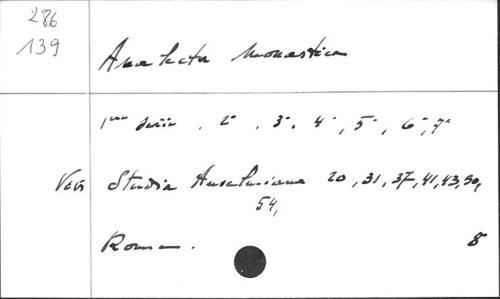 286
139
Analecta Monastica
1ère Série , 2e , 3e, 4e, 5e, 6e, 7e
Voir Studia Anselmiana 20, 31, 37, 41, 43, 50,
54,
Roma. 8°